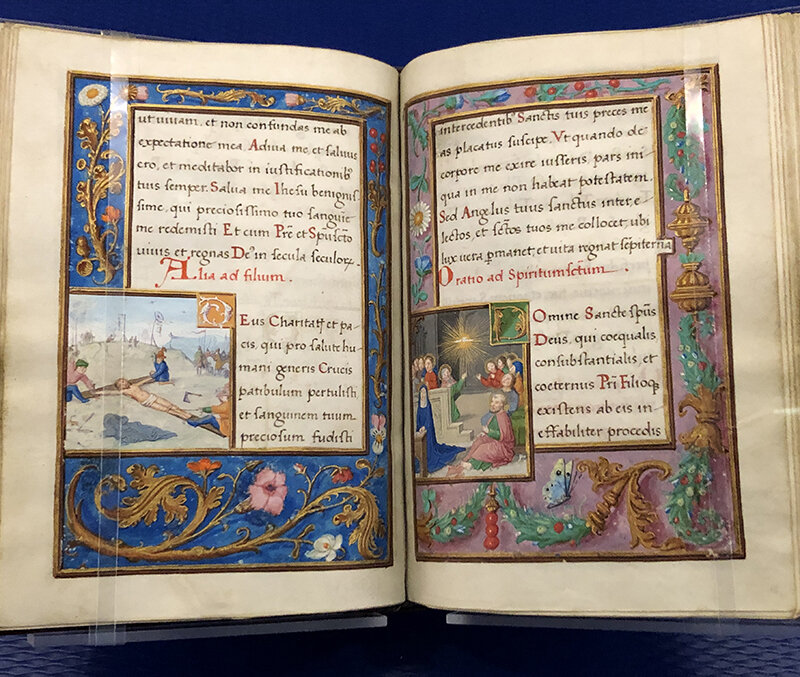 ut viuam, et non confundas me ab
expectatione mea. Adiua me, et saluus
ero, et meditabor in iustificationib9
tuis semper. Salua me Ihesu benignis
sime, qui preciosissimo tuo sanguie
me redemisti Et cum Pr̄e et Sp̄uscto
viuis et regnas De9 in secula seculorꝝ.
Alia ad filium.
DEus Charitatꝭ et pa-
cis, qui pro salute hu
mani generis Crucis
patibulum pertulisti
et sanguinem tuum
preciosum fudisti
intercedentib9 Sanctis tuis preces me
as placatus suscipe. Vt quando de
corpore me exire iusseris, pars ini
qua in me non habeat potestatem.
Sed Angelus tuus sanctus inter, e-
lectos, et sc̄tos tuos me collocet, ubi
lux vera ꝑmanet, et uita regnat sepiterna
Oratio ad Spiritumsc̄tum.
DOmine Sancte sp̄us
Deus, qui coequalis
consubstantialis, et
coeternus Pr̄i Filioqꝫ
existens ab eis in-
effabiliter procedis